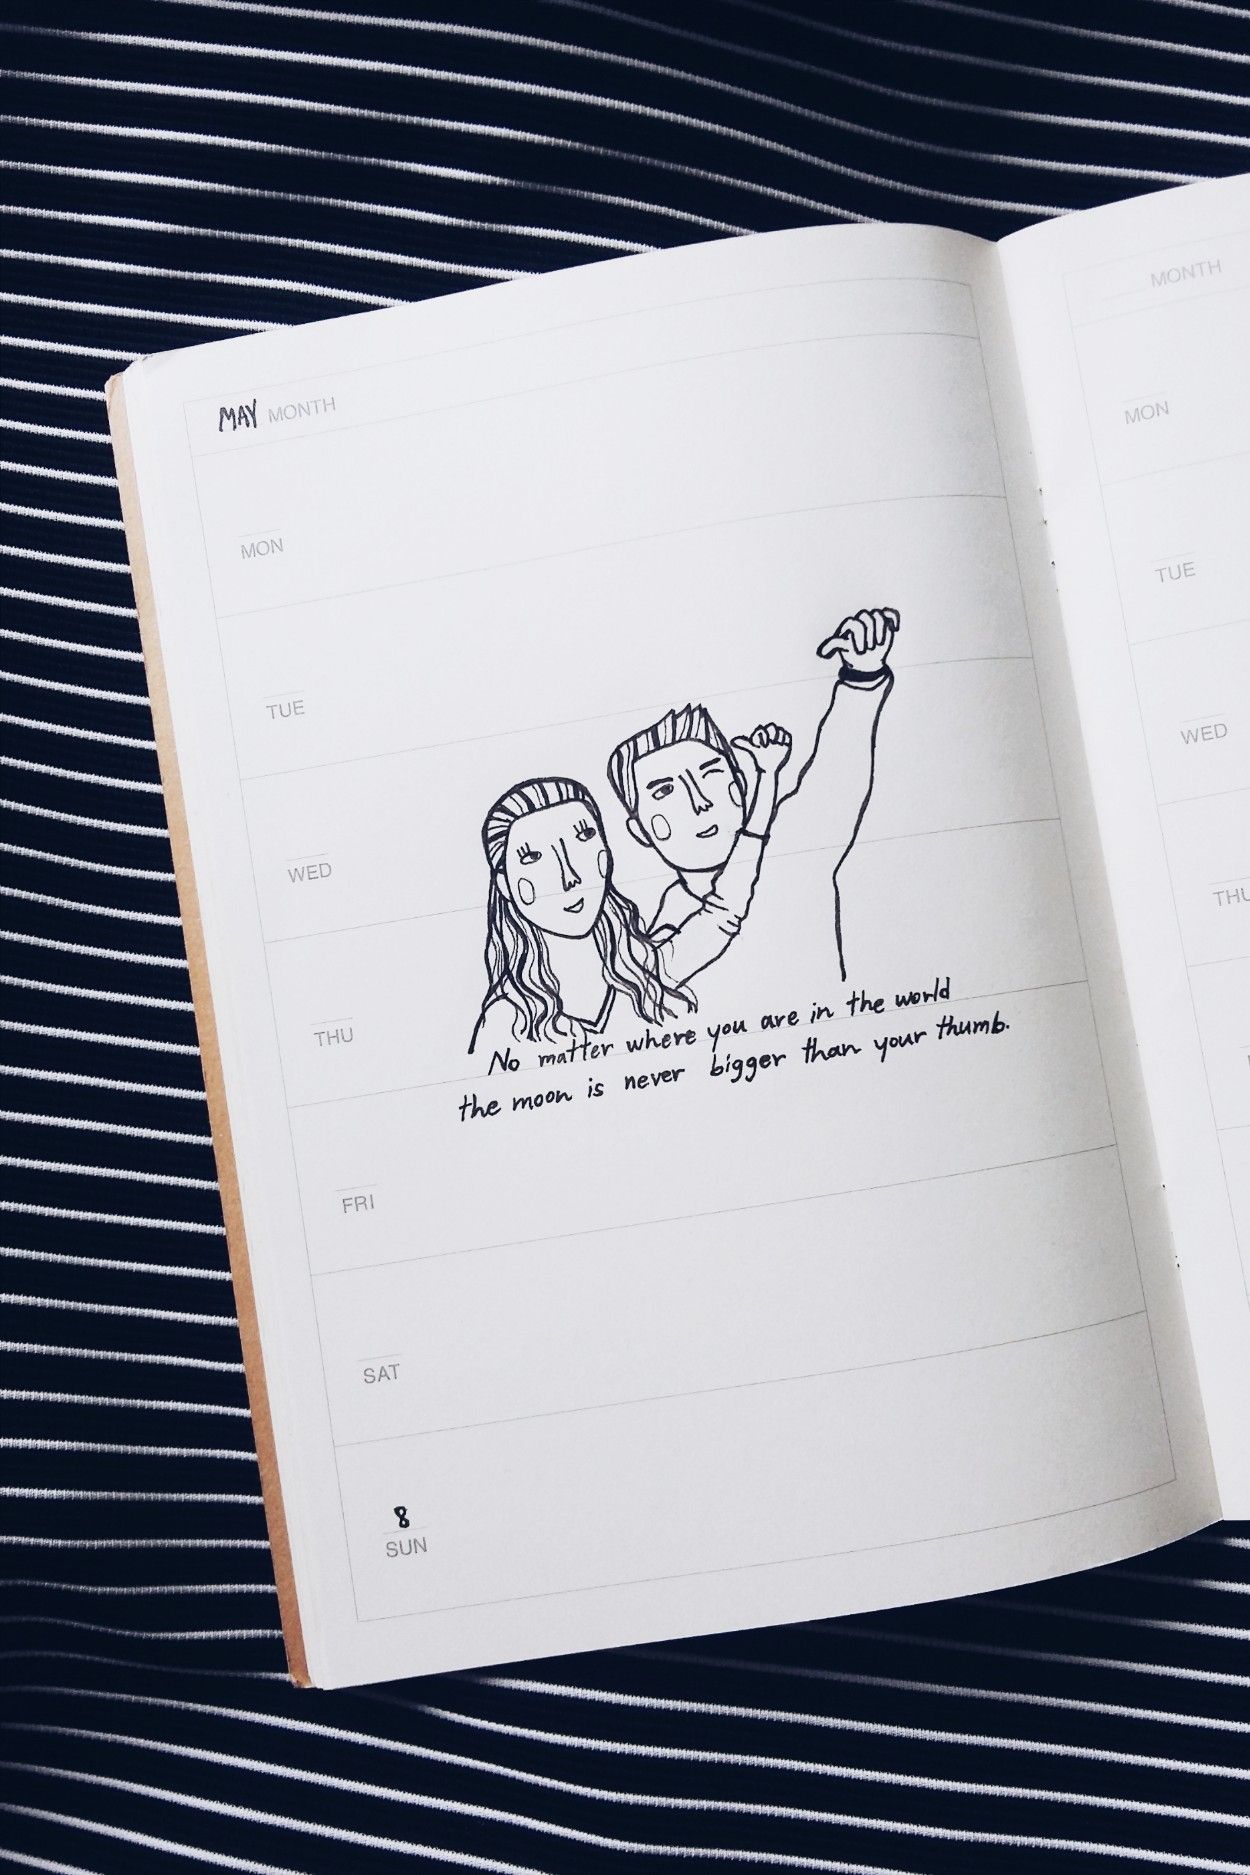 MAY MONTH
MON
TUE
WED
THU
No matter where you are in the world
the moon is never bigger than your thumb.
FRI
SAT
8
SUN
MONTH
MON
TUE
WED
THU